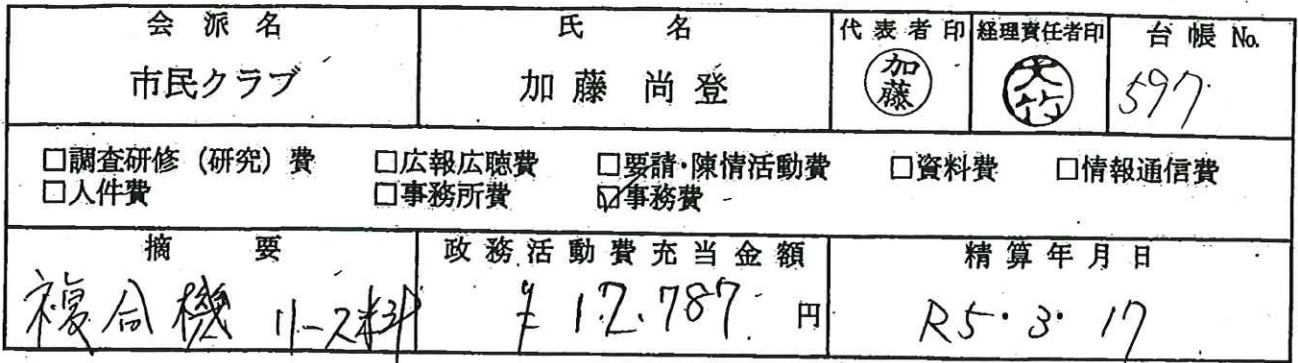 会派名 氏名 代表者印 経理責任者印 台帳No.
市民クラブ 加藤尚登 加藤 大竹 597
□調査研修（研究）費 □広報広聴費 □要請・陳情活動費 □資料費 □情報通信費
□人件費 □事務所費 ☑事務費
摘要 政務活動費充当金額 精算年月日
複合機リース料 ¥12.787 円 R5・3・17